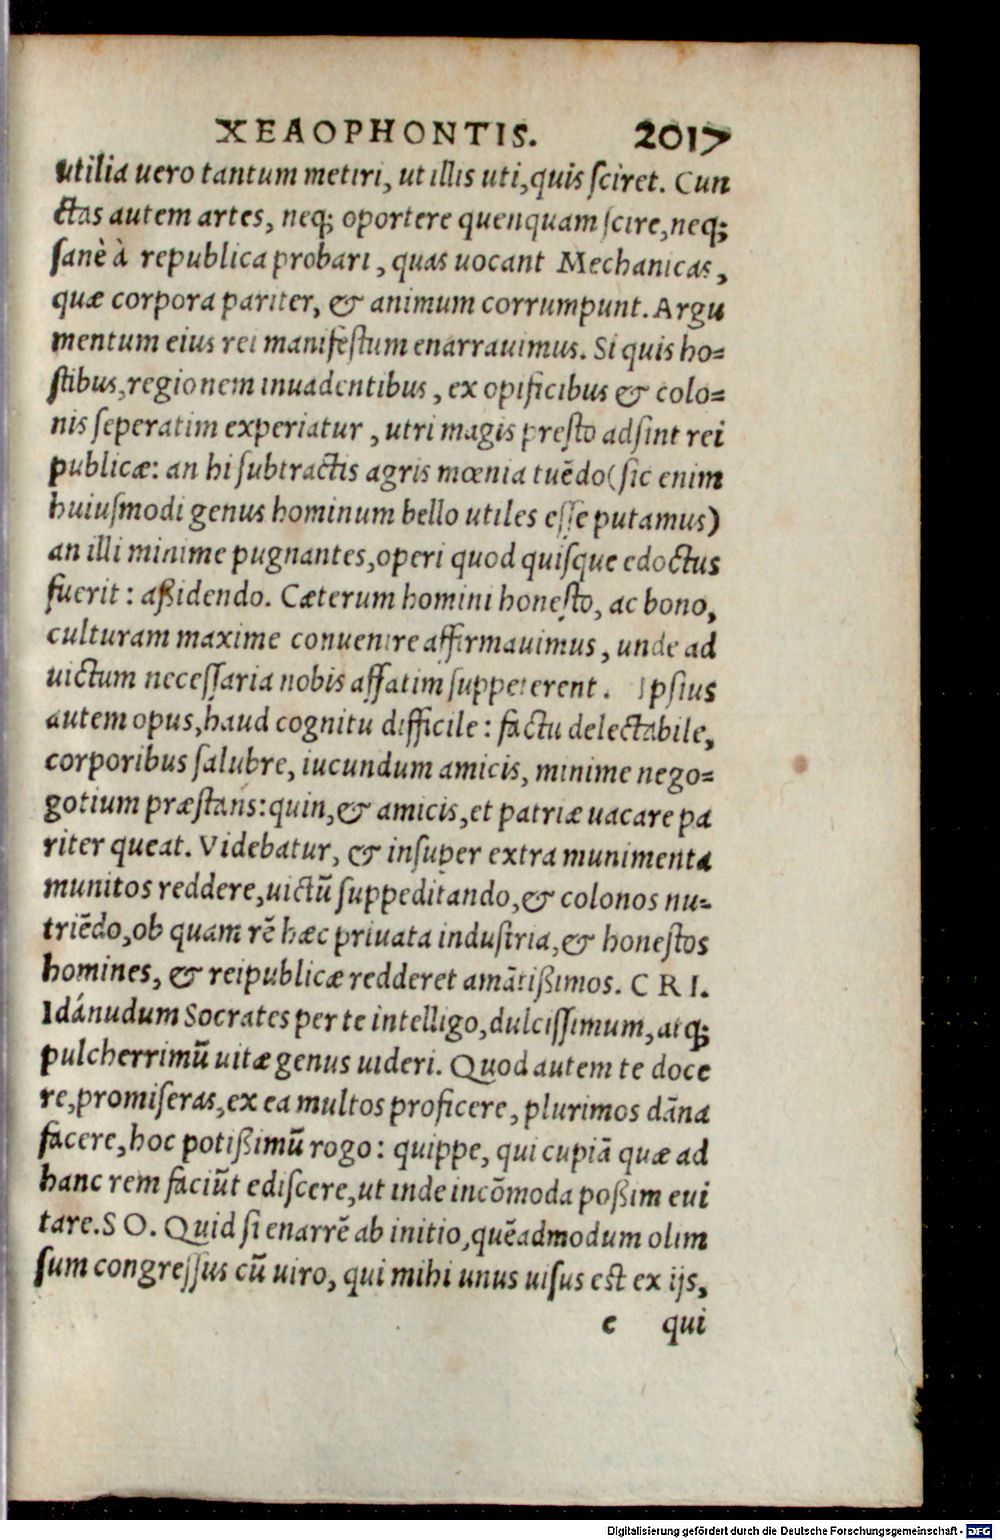 XEAOPHONTIS. 2017
utilia uero tantum metiri, ut illis uti, quis ſciret. Cun
ctas autem artes, neq; oportere quenquam ſcire, neq;
ſanè à republica probari, quas uocant Mechanicas,
quæ corpora pariter, & animum corrumpunt. Argu
mentum eius rei manifeſtum enarrauimus. Si quis ho=
ſtibus, regionem inuadentibus, ex opificibus & colo=
nis ſeperatim experiatur, utri magis preſto adſint rei
publicæ: an hi ſubtractis agris mœnia tuēdo (ſic enim
huiuſmodi genus hominum bello utiles eſſe putamus)
an illi minime pugnantes, operi quod quiſque edoctus
fuerit: aßidendo. Cæterum homini honeſto, ac bono,
culturam maxime conuenire affirmauimus, unde ad
uictum neceſſaria nobis affatim ſuppeterent. Ipſius
autem opus, haud cognitu difficile: factu delectabile,
corporibus ſalubre, iucundum amicis, minime nego=
gotium præſtans: quin, & amicis, et patriæ uacare pa
riter queat. Videbatur, & inſuper extra munimenta
munitos reddere, uictū ſuppeditando, & colonos nu=
triēdo, ob quam rē hæc priuata induſtria, & honeſtos
homines, & reipublicæ redderet amātißimos. C R I.
Idánudum Socrates per te intelligo, dulciſſimum, atq;
pulcherrimū uitæ genus uideri. Quod autem te doce
re, promiſeras, ex ea multos proficere, plurimos dāna
facere, hoc potißimū rogo: quippe, qui cupiā quæ ad
hanc rem faciūt ediſcere, ut inde incōmoda poßim eui
tare. S O. Quid ſi enarrē ab initio, quēadmodum olim
ſum congreſſus cū uiro, qui mihi unus uiſus eſt ex ijs,
c qui
Digitalisierung gefördert durch die Deutsche Forschungsgemeinschaft - DFG